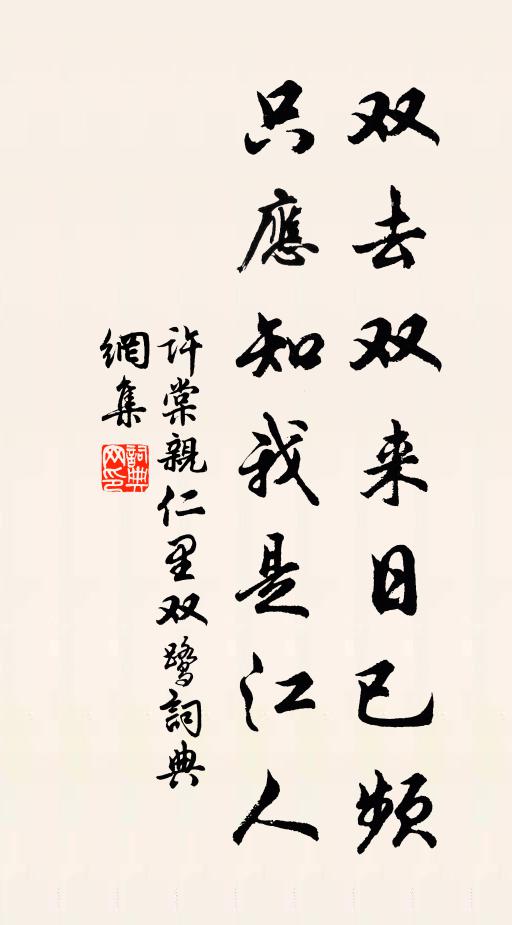 双去双来日已频
只應知我是江人
许棠親仁里双鹭詞典
網集
詞典网印